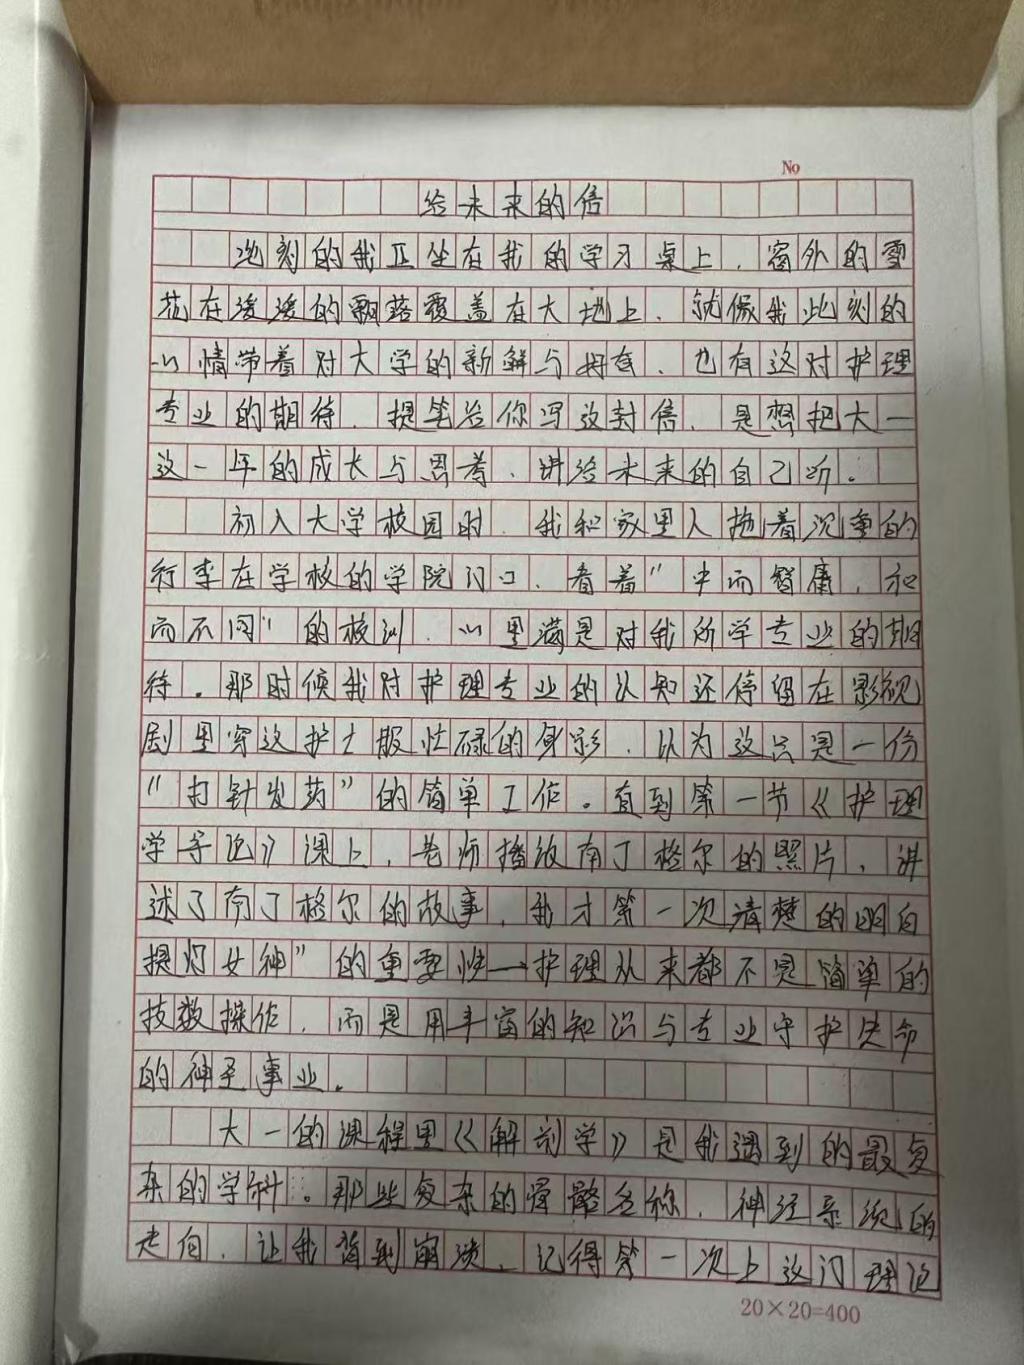 No
给未来的信
此刻的我正坐在我的学习桌上，窗外的雪
花在缓缓的飘落覆盖在大地上，就像我此刻的
心情带着对大学的新鲜与拥有，也有这对护理
专业的期待，提笔给你写这封信，是想把大一
这一年的成长与思考，讲给未来的自己听。
初入大学校园时，我和家里人拖着沉重的
行李在学校的学院门口，看着"中而智庸，和
而不同"的校训，心里满是对我所学专业的期
待。那时候我对护理专业的认知还停留在影视
剧里穿这护士服忙碌的身影，以为这只是一份
"打针发药"的简单工作。直到第一节《护理
学导论》课上，老师播放南丁格尔的照片，讲
述了南丁格尔的故事，我才第一次清楚的明白
提灯女神"的重要性—护理从来都不是简单的
技数操作，而是用丰富的知识与专业守护生命
的神圣事业。
大一的课程里《解剖学》是我遇到的最复
杂的学科。那些复杂的骨骼名称，神经系统的
走向，让我背到崩溃，记得第一次上这门理论
20×20=400